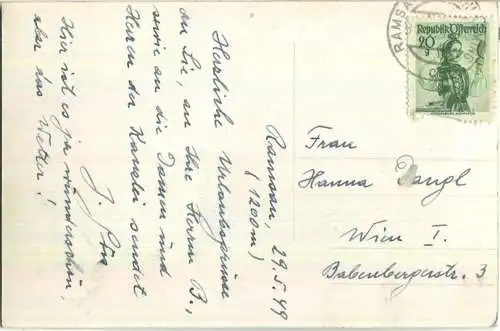 Ramsau, 29.5.49
(1200m)
Herzliche Urlaubsgrüsse
an Sie, an Ihre Herren B.,
sowie an die Damen und
Herren der Kanzlei sendet
Hier ist es ja wunderschön,
aber das Wetter!
Frau
Hanna Dangl
Wien I.
Babenbergerstr. 3
RAMSA
Republik Österreich
20
g